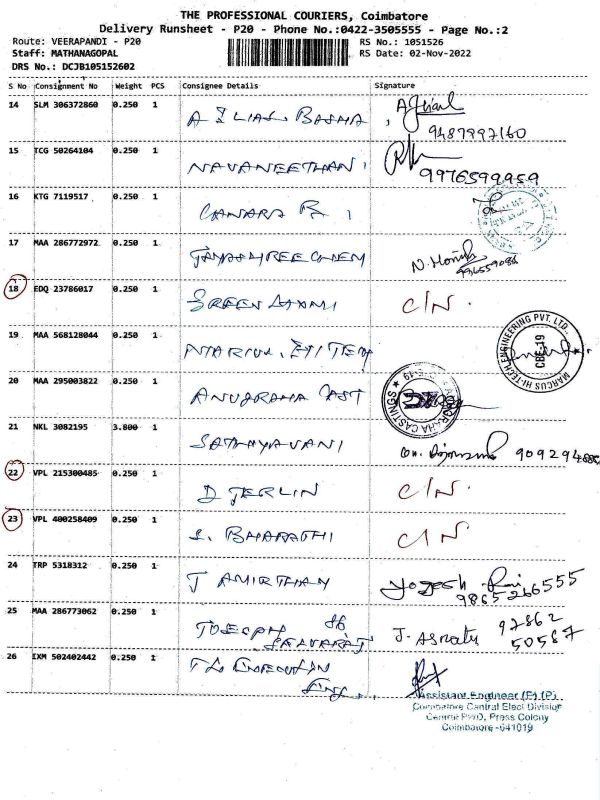 THE PROFESSIONAL COURIERS, Coimbatore
Delivery Runsheet - P20 - Phone No.:0422-3505555 - Page No.:2
Route: VEERAPANDI - P20 RS No.: 1051526
Staff: MATHANAGOPAL RS Date: 02-Nov-2022
DRS No.: DCJB105152602
S No Consignment No Weight PCS Consignee Details Signature
14 SLM 306372860 0.250 1 A ILIAS BASHA
9487997160
15 TCG 50264104 0.250 1 NAVANEETHAN
9976599959
16 KTG 7119517 0.250 1 CANARA B
17 MAA 286772972 0.250 1 N.
18 EDQ 23786017 0.250 1 SREEN LAXMI C/N.
19 MAA 568128044 0.250 1
MARCUS HI-TECH ENGINEERING PVT. LTD.
CBE-19
20 MAA 295003822 0.250 1 ANUGRAHA CAST
21 NKL 3082195 3.800 1 SATHYAVANI
22 VPL 215300485 0.250 1 D JERLIN C/N.
23 VPL 400258409 0.250 1 S. BHARATHI C/N.
24 TRP 5318312 0.250 1 J AMIRTHAM Yogesh
9865266555
25 MAA 286773062 0.250 1 JOSEPH J. 97862
50587
26 IXM 502402442 0.250 1
Assistant Engineer (E) (P)
Coimbatore Central Elecl Division
Central PWD, Press Colony
Coimbatore -641019